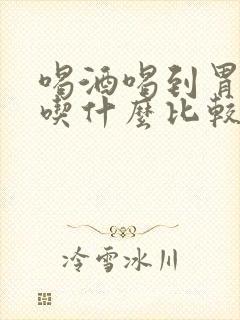 喝酒喝到胃
喫什麼比較
冷雪冰川